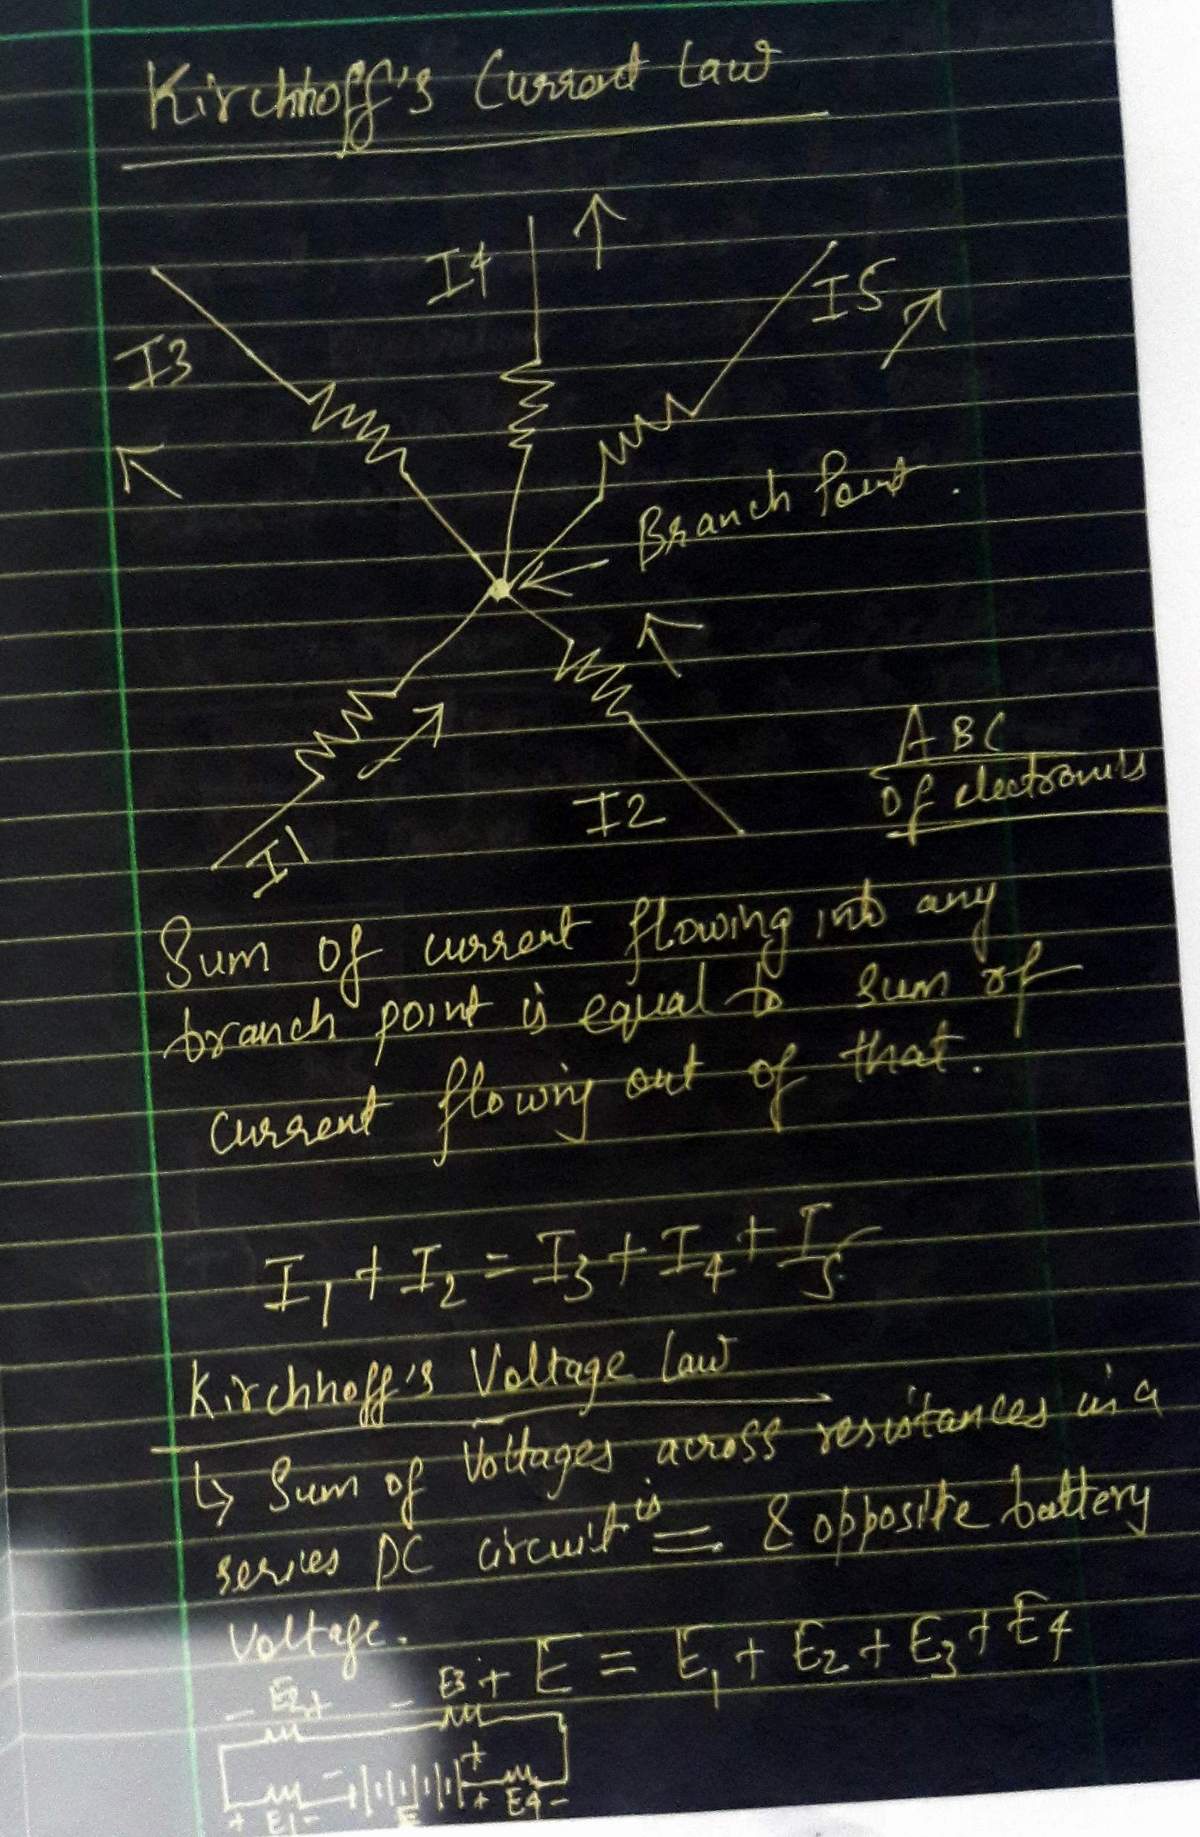 Kirchhoff's Current Law
I4
I5
I3
Branch Point.
ABC
Of electronics
I2
I1
Sum of current flowing into any
branch point is equal to sum of
current flowing out of that.
I1 + I2 = I3 + I4 + I5
Kirchhoff's Voltage Law
↳ Sum of Voltages across resistances in a
series DC circuit is = & opposite battery
Voltage.
E = E1 + E2 + E3 + E4
- E2 + - E3 +
- +
+ E1 - E + E4 -